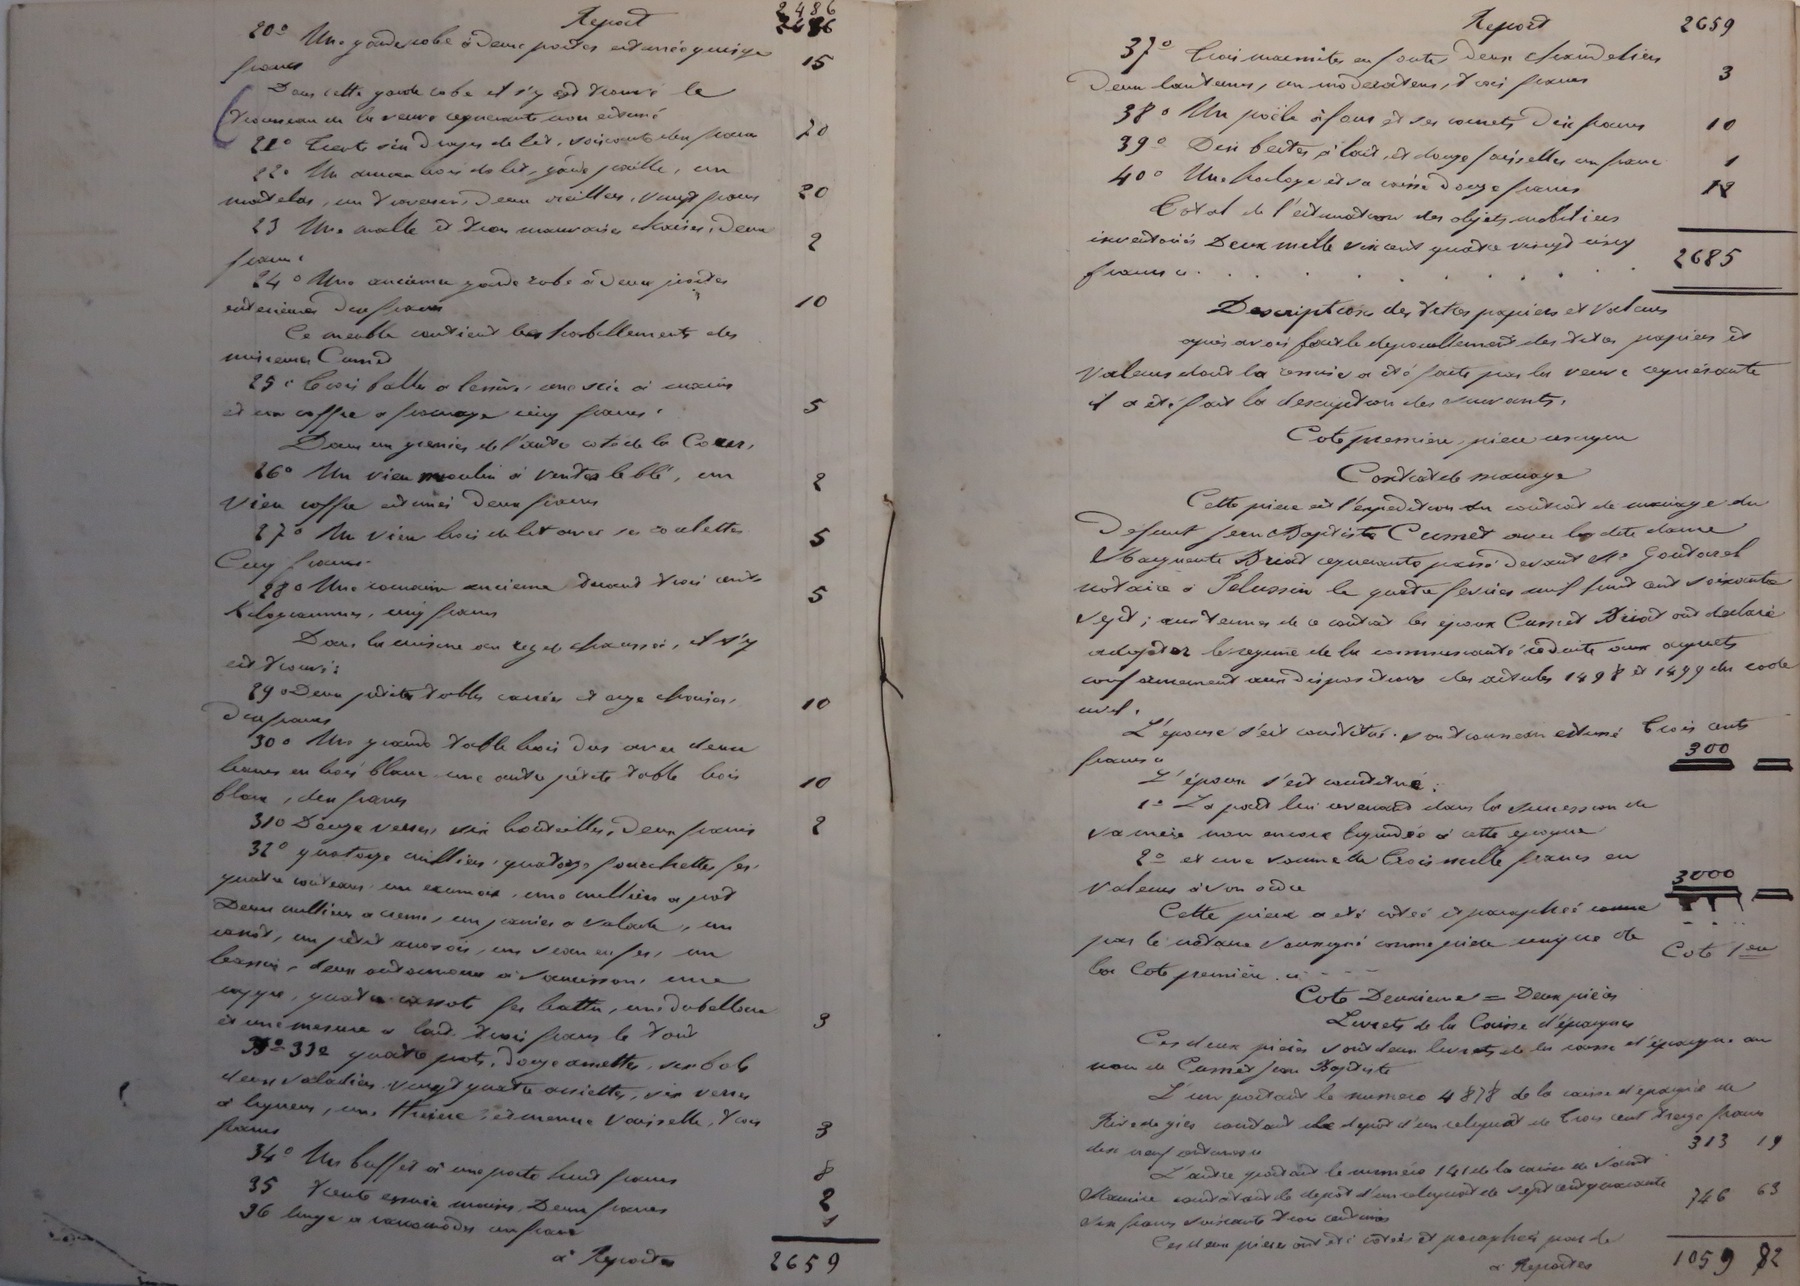 Report 2486
2486
20° Une garde robe à deux portes estimée quinze
francs 15
Dans cette garde robe il s'y est trouvé le
trousseau de la veuve requérante non estimé
21° Trente six draps de lit, soixante dix francs 70
22° Un ancien bois de lit, garde paille, un
matelas, un traversin, deux oreillers, vingt francs 20
23 Une malle et trois mauvaises chaises, deux
francs 2
24° Une ancienne garde robe à deux portes
estimée dix francs 10
Ce meuble contient les habillements des
mineurs Cumet
25° Trois balles a lessive, une scie à mains
et un coffre a fromage cinq francs 5
Dans un grenier de l'autre coté de la Cour,
26° Un vieux moulin à venter le blé, un
vieux coffre estimés deux francs 2
27° Un vieux bois de lit avec ses roulettes
Cinq francs 5
28° Une romaine ancienne tirant trois cents
kilogrammes, cinq francs 5
Dans la cuisine au rez de chaussée, il s'y
est trouvé :
29° Deux petites tables carrées et onze chaises,
dix francs 10
30° Une grande table bois dur avec deux
bancs en bois blanc une autre petite table bois
blanc, dix francs 10
31° Douze verres, six bouteilles, deux francs 2
32° quatorze cuillers, quatorze fourchettes fer,
quatre couteaux, un , une cuiller a pot
Deux cuillers a creme, un panier a salade, un
, un petit arrosoir, un seau en fer, un
bassin, deux a saucisson, une
, quatre fer battu, une
et une mesure a lait trois francs le tout 3
33e quatre pots, douze assiettes, six bols
deux saladiers, vingt quatre assiettes, six verres
à liqueur, une et menue vaisselle, trois
francs 3
34° Un buffet à une porte huit francs 8
35 Trente essuie mains, Deux francs 2
36 linge a raccomoder un franc 1
à Reporter 2659
Report 2659
37° Trois marmites en fonte, deux chandeliers
Deux lanternes, un moderateur, trois francs 3
38° Un poële à four et ses cornets Dix francs 10
39° Dix bertes à lait, et douze faisselles un franc 1
40° Une horloge et sa caisse douze francs 12
Total de l'estimation des objets mobiliers
inventoriés Deux mille six cent quatre vingt cinq
francs 2685
Description des titres papiers et valeurs
après avoir fait le depouillement des titres papiers et
valeurs dont la remise a été faite par la veuve requérante
il a été fait la description des suivants,
Cote première, pièce unique
Contrat de mariage
Cette pièce est l'expédition du contrat de mariage du
Defunt Jean Baptiste Cumet avec la dite dame
Marguerite Briat requérante passé devant Me Goutarel
notaire à Pelussin le quatre fevrier mil huit cent soixante
sept ; aux termes de ce contrat les époux Cumet Briat ont déclaré
adopter le regime de la communauté réduite aux acquets
conformement aux dispositions des articles 1498 et 1499 du code
civil.
L'épouse s'est constitué son trousseau estimé Trois cents
francs 300
L'époux s'est constitué :
1° La part lui revenant dans la succession de
sa mère non encore liquidée à cette époque
2° et une somme de Trois mille francs en
valeurs à son ordre 3000
Cette pièce a été cotée et paraphée comme
par le notaire soussigné comme pièce unique de
la Cote première. Cote 1ere
Cote Deuxieme = Deux pièces
Livrets de la Caisse d'épargnes
Ces deux pièces sont deux livrets de la caisse d'épargne au
nom de Cumet Jean Baptiste
L'un portant le numero 4878 de la caisse d'épargne de
Rive de gier constant le depot d'un reliquat de Trois cent treize francs
dix neuf centimes 313 19
L'autre portant le numéro 141 de la caisse de Saint
Maurice constatant le depot d'un reliquat de sept cent quarante
six francs soixante trois centimes 746 63
Ces deux pièces ont été cotées et paraphées par le
à Reporter 1059 82